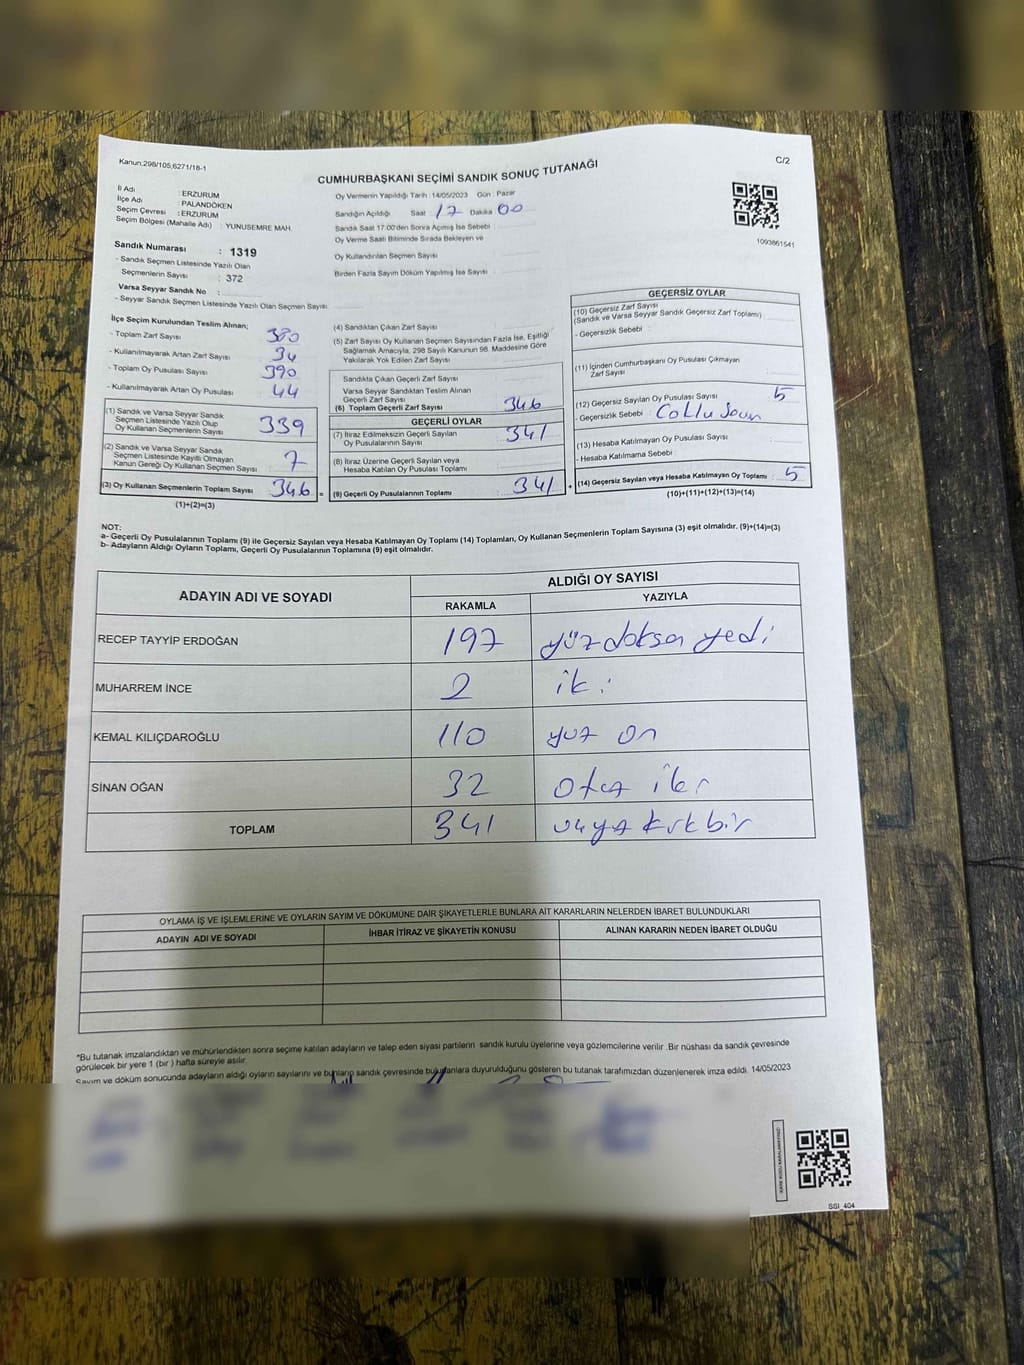 Kanun;298/105;6271/18-1
C/2
CUMHURBAŞKANI SEÇİMİ SANDIK SONUÇ TUTANAĞI
İl Adı : ERZURUM
İlçe Adı : PALANDÖKEN
Seçim Çevresi : ERZURUM
Seçim Bölgesi (Mahalle Adı) : YUNUSEMRE MAH.
Sandık Numarası : 1319
- Sandık Seçmen Listesinde Yazılı Olan
Seçmenlerin Sayısı : 372
Varsa Seyyar Sandık No :
- Seyyar Sandık Seçmen Listesinde Yazılı Olan Seçmen Sayısı :
Oy Vermenin Yapıldığı Tarih : 14/05/2023 Gün : Pazar
Sandığın Açıldığı Saat 17 Dakika 00
Sandık Saat 17:00'den Sonra Açılmış İse Sebebi :
Oy Verme Saati Bitiminde Sırada Bekleyen ve
Oy Kullandırılan Seçmen Sayısı :
Birden Fazla Sayım Döküm Yapılmış İse Sayısı :
1093861541
İlçe Seçim Kurulundan Teslim Alınan;
- Toplam Zarf Sayısı : 380
- Kullanılmayarak Artan Zarf Sayısı : 34
- Toplam Oy Pusulası Sayısı : 390
- Kullanılmayarak Artan Oy Pusulası : 44
(1) Sandık ve Varsa Seyyar Sandık
Seçmen Listesinde Yazılı Olup
Oy Kullanan Seçmenlerin Sayısı 339
(2) Sandık ve Varsa Seyyar Sandık
Seçmen Listesinde Kayıtlı Olmayan
Kanun Gereği Oy Kullanan Seçmen Sayısı 7
(3) Oy Kullanan Seçmenlerin Toplam Sayısı 346
(1)+(2)=(3)
(4) Sandıktan Çıkan Zarf Sayısı
(5) Zarf Sayısı Oy Kullanan Seçmen Sayısından Fazla İse, Eşitliği
Sağlamak Amacıyla, 298 Sayılı Kanunun 98. Maddesine Göre
Yakılarak Yok Edilen Zarf Sayısı
Sandıkta Çıkan Geçerli Zarf Sayısı
Varsa Seyyar Sandıktan Teslim Alınan
Geçerli Zarf Sayısı
(6) Toplam Geçerli Zarf Sayısı 346
GEÇERLİ OYLAR
(7) İtiraz Edilmeksizin Geçerli Sayılan
Oy Pusulalarının Sayısı 341
(8) İtiraz Üzerine Geçerli Sayılan veya
Hesaba Katılan Oy Pusulası Toplamı
= (9) Geçerli Oy Pusulalarının Toplamı 341
GEÇERSİZ OYLAR
(10) Geçersiz Zarf Sayısı
(Sandık ve Varsa Seyyar Sandık Geçersiz Zarf Toplamı)
- Geçersizlik Sebebi :
(11) İçinden Cumhurbaşkanı Oy Pusulası Çıkmayan
Zarf Sayısı
(12) Geçersiz Sayılan Oy Pusulası Sayısı 5
- Geçersizlik Sebebi :
(13) Hesaba Katılmayan Oy Pusulası Sayısı
- Hesaba Katılmama Sebebi :
+ (14) Geçersiz Sayılan veya Hesaba Katılmayan Oy Toplamı 5
(10)+(11)+(12)+(13)=(14)
NOT:
a- Geçerli Oy Pusulalarının Toplamı (9) ile Geçersiz Sayılan veya Hesaba Katılmayan Oy Toplamı (14) Toplamları, Oy Kullanan Seçmenlerin Toplam Sayısına (3) eşit olmalıdır. (9)+(14)=(3)
b- Adayların Aldığı Oyların Toplamı, Geçerli Oy Pusulalarının Toplamına (9) eşit olmalıdır.
ADAYIN ADI VE SOYADI
ALDIĞI OY SAYISI
RAKAMLA YAZIYLA
RECEP TAYYİP ERDOĞAN 197 yüzdoksan yedi
MUHARREM İNCE 2 iki
KEMAL KILIÇDAROĞLU 110 yüz on
SİNAN OĞAN 32 otuz iki
TOPLAM 341 üçyz kırkbir
OYLAMA İŞ VE İŞLEMLERİNE VE OYLARIN SAYIM VE DÖKÜMÜNE DAİR ŞİKAYETLERLE BUNLARA AİT KARARLARIN NELERDEN İBARET BULUNDUKLARI
ADAYIN ADI VE SOYADI İHBAR İTİRAZ VE ŞİKAYETİN KONUSU ALINAN KARARIN NEDEN İBARET OLDUĞU
*Bu tutanak imzalandıktan ve mühürlendikten sonra seçime katılan adayların ve talep eden siyasi partilerin sandık kurulu üyelerine veya gözlemcilerine verilir .Bir nüshası da sandık çevresinde
görülecek bir yere 1 (bir ) hafta süreyle asılır.
Sayım ve döküm sonucunda adayların aldığı oyların sayılarını ve bunların sandık çevresinde bulunanlara duyurulduğunu gösteren bu tutanak tarafımızdan düzenlenerek imza edildi. 14/05/2023
SSI_404